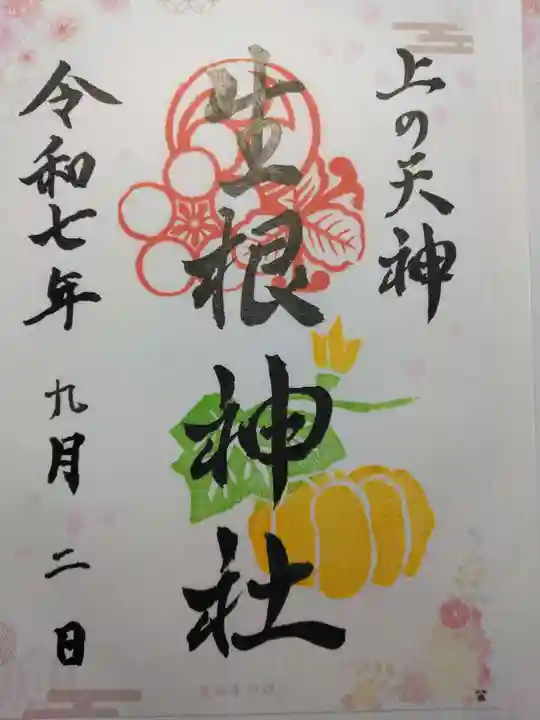 上の天神
生根神社
令和七年 九月 二日